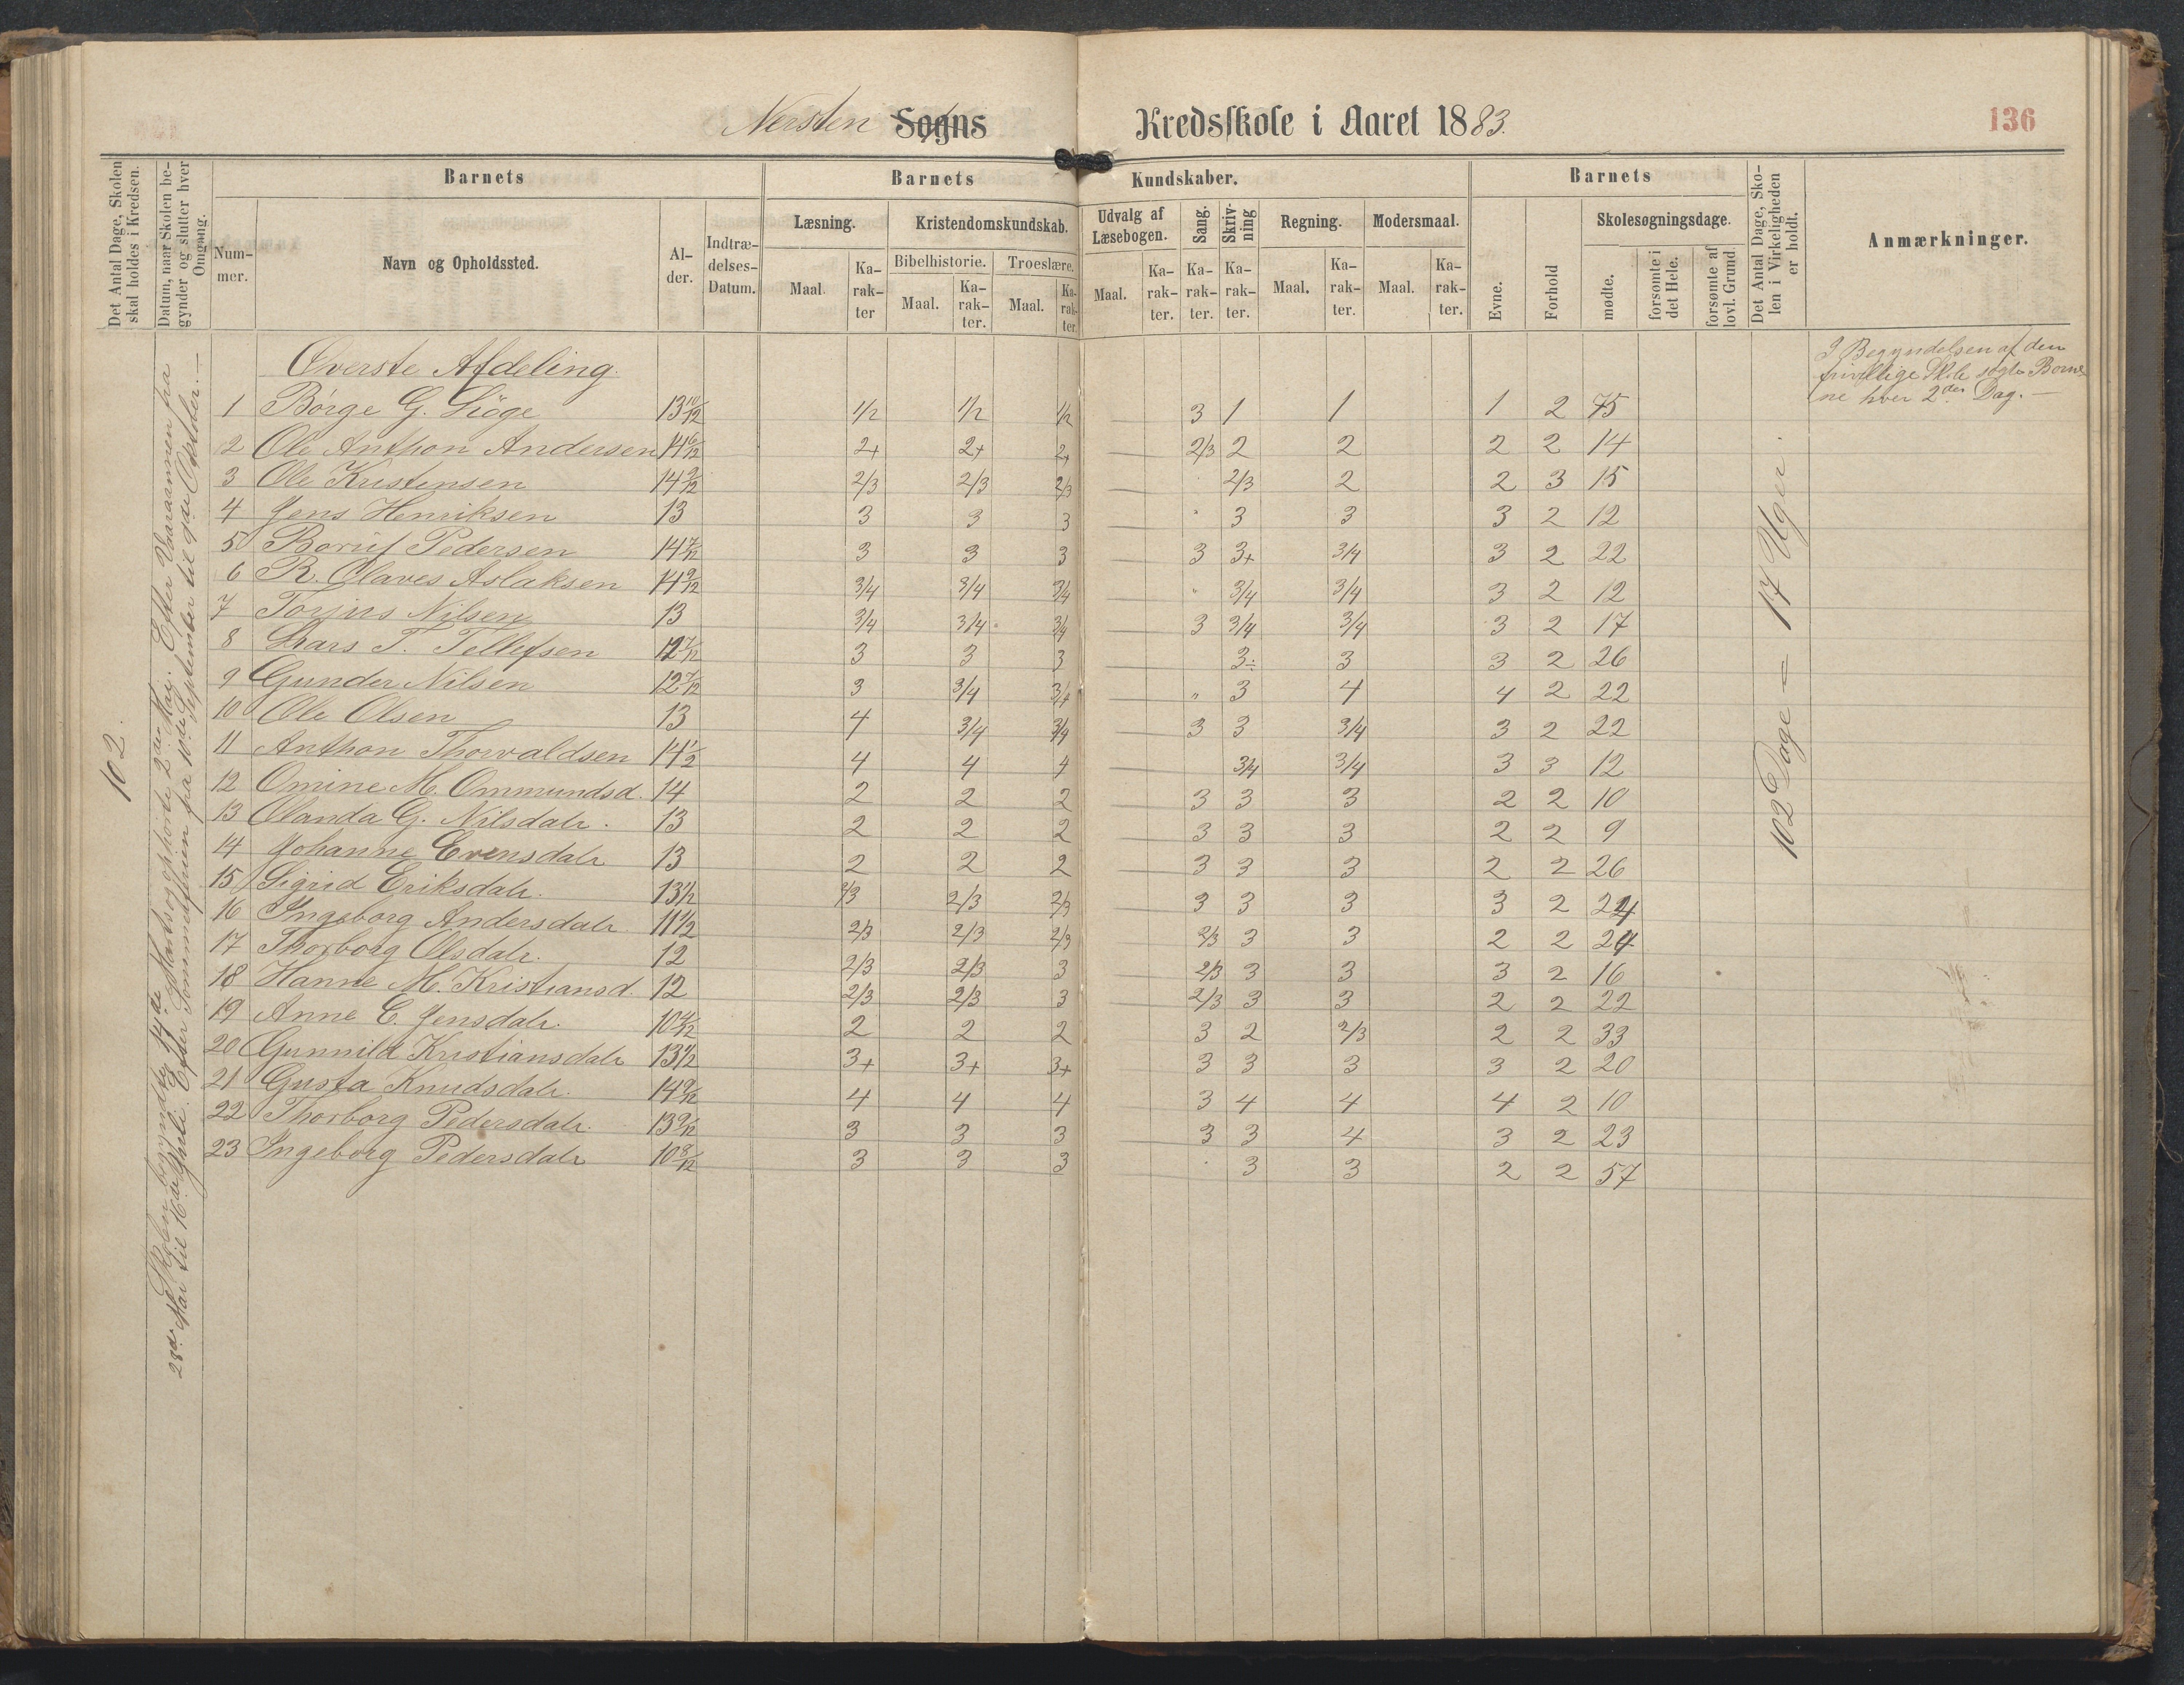 Nersten Sogns Kredsskole i Aaret 1883.
136
Det Antal Dage, Skolen skal holdes i Kredsen.
Datum, naar Skolen begynder og slutter hver Omgang.
Barnets
Nummer.
Navn og Opholdssted.
Alder.
Indtrædelses-Datum.
Barnets Kundskaber.
Læsning.
Maal.
Karakter
Kristendomskundskab.
Bibelhistorie.
Maal.
Karakter.
Troeslære.
Maal.
Karakter.
Udvalg af Læsebogen.
Maal.
Karakter.
Sang.
Karakter.
Skrivning
Karakter.
Regning.
Maal.
Karakter.
Modersmaal.
Maal.
Karakter.
Barnets
Evne.
Forhold
Skolesøgningsdage.
mødte.
forsømte i det Hele.
forsømte af lovl. Grund.
Det Antal Dage, Skolen i Virkeligheden er holdt.
Anmærkninger.
102.
Skolen begyndte 14de Marts og ophørte 2den Mai. Efter Vaaraannen fra
28de Mai til 16de Juli. Efter Sommerferien fra 10de September til 9de Oktober. —
Øverste Afdeling.
1 Børge G. Lióge 13 10/12 1/2 1/2 1/2 — 3 1 1 1 2 75
2 Ole Anthon Andersen 14 6/12 2+ 2+ 2+ — 2/3 2 2 2 2 14
3 Ole Kristensen 14 2/12 2/3 2/3 2/3 — 2/3 2 2 3 15
4 Jens Henriksen 13 3 3 3 — " 3 3 3 2 12
5 Boruf Pedersen 14 7/12 3 3 3 — 3 3+ 3/4 3 2 22
6 R. Olaves Aslaksen 14 9/12 3/4 3/4 3/4 — " 3/4 3/4 3 2 12
7 Torjus Nilsen 13 3/4 3/4 3/4 — 3 3/4 3/4 3 2 17
8 Lars T. Tellefsen 12 7/12 3 3 3 — 3÷ 3 3 2 26
9 Gunder Nilsen 12 7/12 3 3/4 3/4 — " 3 4 4 2 22
10 Ole Olsen 13 4 3/4 3/4 — 3 3 3/4 3 2 22
11 Anthon Thorvaldsen 14 1/2 4 4 4 — 3/4 3/4 3 3 12
12 Omine M. Ommundsd. 14 2 2 2 — 3 3 3 2 2 10
13 Olanda G. Nilsdatr. 13 2 2 2 — 3 3 3 2 2 9
14 Johanne Evensdatr 13 2 2 2 — 3 3 3 2 2 26
15 Sigrid Eriksdatr. 13 1/2 2/3 2/3 2/3 — 3 3 3 3 2 24
16 Ingeborg Andersdatr. 11 1/2 2/3 2/3 2/3 — 2/3 3 3 2 2 24
17 Thorborg Olsdatr. 12 2/3 2/3 3 — 2/3 3 3 3 2 16
18 Hanne M. Kristiansd. 12 2/3 2/3 3 — 2/3 3 3 2 2 22
19 Anne C. Jensdatr. 10 4/12 2 2 2 — 3 2 2/3 2 2 33
20 Gunnild Kristiansdatr 13 1/2 3+ 3+ 3+ — 3 3 3 3 2 20
21 Gusta Knudsdatr. 14 9/12 4 4 4 — 3 4 4 4 2 10
22 Thorborg Pedersdatr. 13 9/12 3 3 3 — 3 3 4 3 2 23
23 Ingeborg Pedersdatr 10 8/12 3 3 3 — 3 3 2 2 57
102 Dage = 17 Uger.
I Begyndelsen af den
frivillige Skole søgte Børne-
ne hver 2den Dag. —